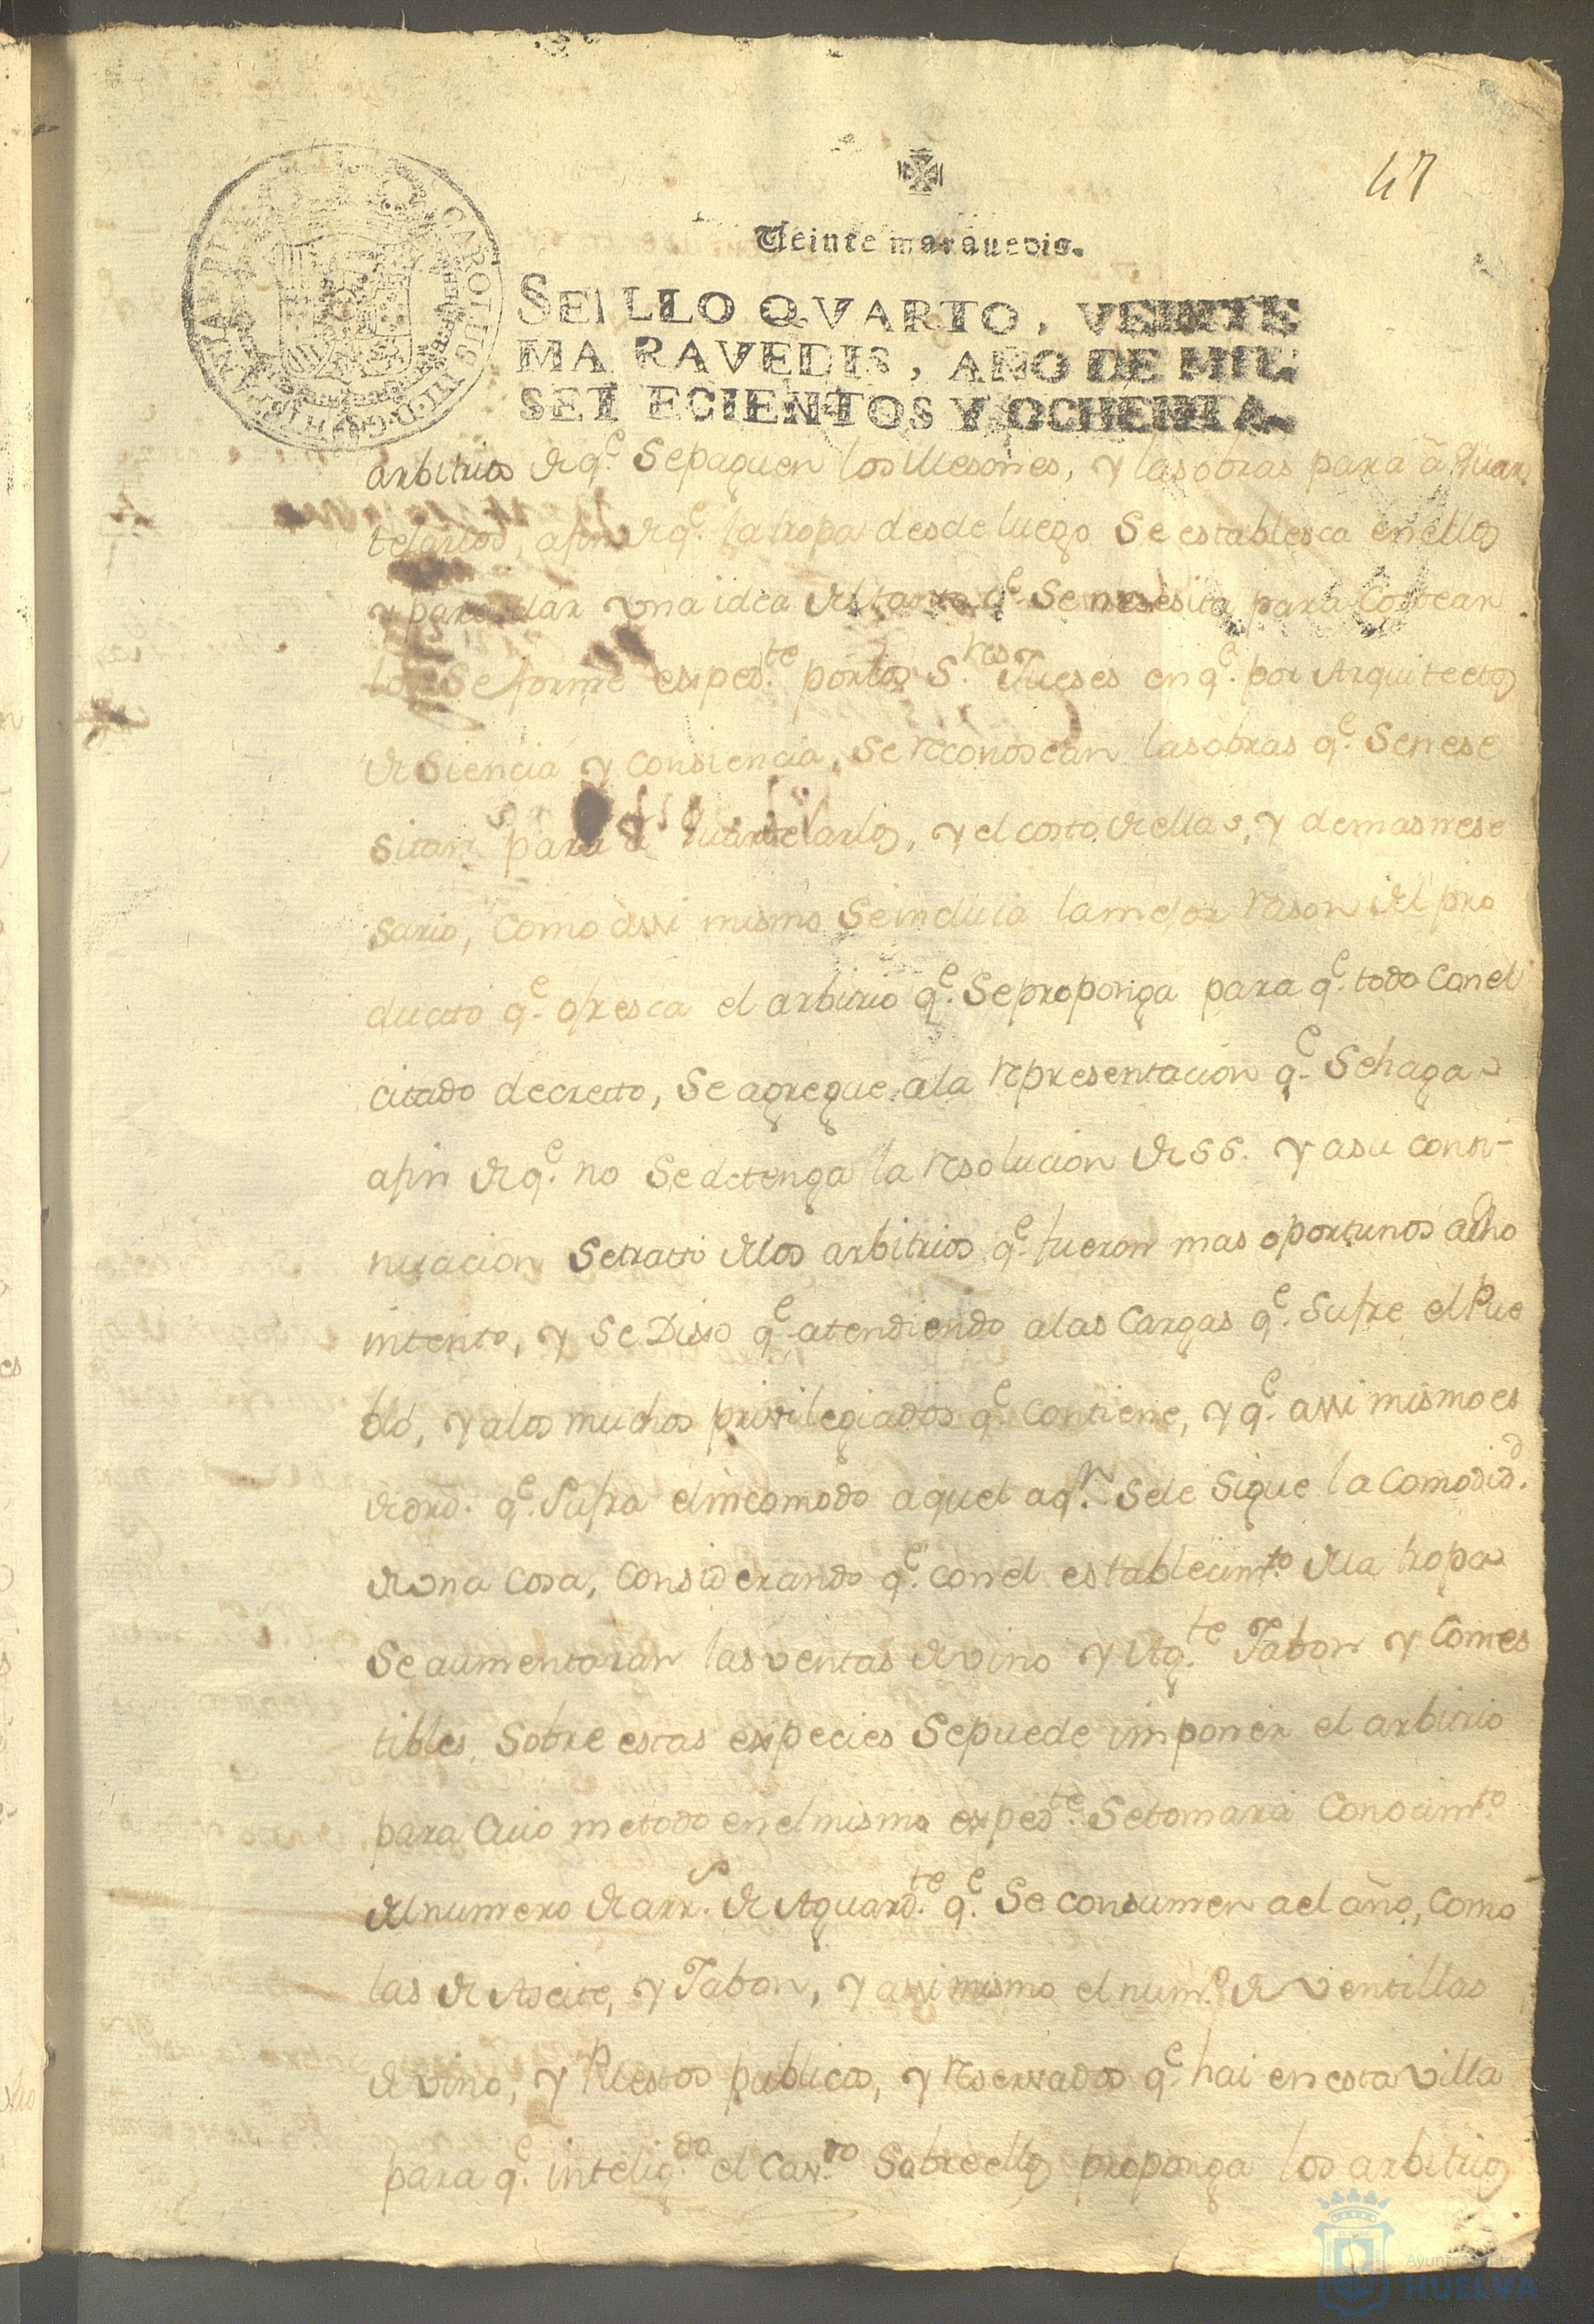 47
Veinte maravedis.
SELLO QVARTO, VEINTE
MARAVEDIS, AÑO DE MIL
SETECIENTOS Y OCHENTA.
CAROLUS III D.G. HISP
arbitrios de q.e Sepaguen los Mesones, y las obras para a Quar
telarlos, afin de q.e la tropa desde luego Se establesca enellos
y para dar vna idea del tanto q.e Se nesesita para Costear
los Se forme exped.te por los S.res Jueses en q.e por Arquitectos
de Siencia y Consiencia, Se reconoscan las obras q.e Se nese
sitan para a Quartelarlos, y el costo de ellas, y demas nese
sario, Como assi mismo Se induia la mejor rason del pro
ducto q.e ofresca el arbitrio q.e Se proponga para q.e todo Con el
citado decretto, Se agregue ala representacion q.e Sehaga
afin de q.e no Se detenga la resolucion de SS. y asu conti-
nuacion Setratti delos arbitrios q.e fueron mas oportunos adho
intento, y Se Dixo q.e atendiendo alas Cargas q.e Sufre el Pue
blo, y alos muchos privilegiados q.e Contiene, y q.e assi mismo es
de ord.n q.e Sufra el incomodo aquel aq.n Sele Sigue la Comodid.d
de vna Cosa, Considerando q.e con el establecim.to dela tropa
Se aumentaran las ventas de vino y Ag.te Jabon y Comes
tibles, Sobre estas expecies Sepuede imponer el arbitrio
para Cuio metodo en el mismo exped.te Setomara Conocim.to
del numero de arr.s de Aguard.te q.e Se consumen ael año, Como
las de Aseite, y Jabon, y assi mismo el num.o de ventillas
de vino, y Puestos publicos, y reservados q.e hai en esta villa
para q.e intelig.do el Cav.do Sobre ellos proponga los arbitrios
Ayuntamiento de
HUELVA